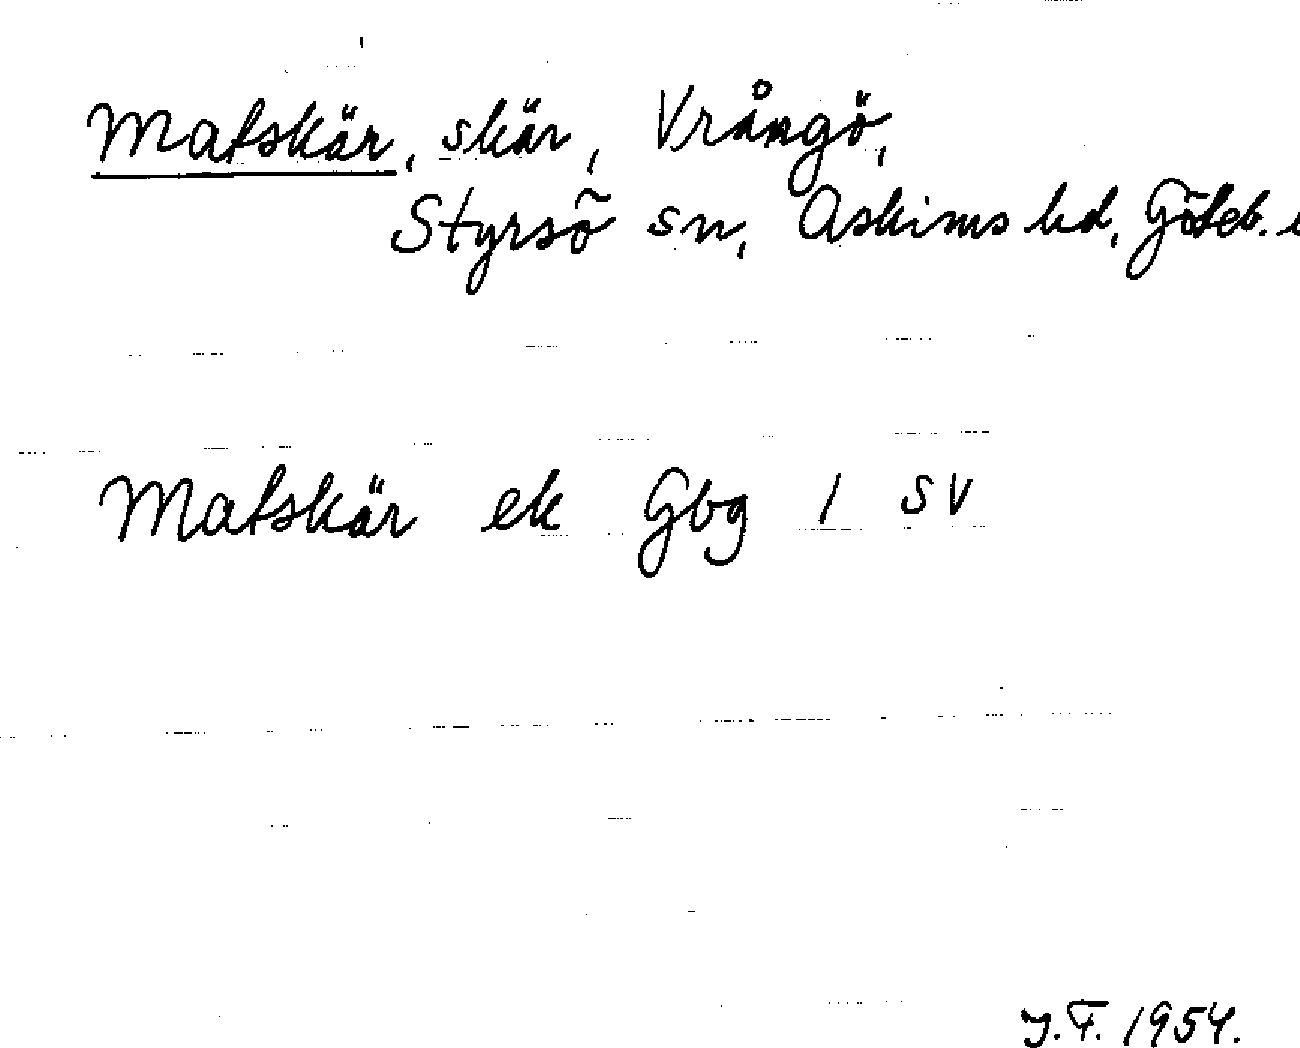 Matskär, skär, Vrångö,
Styrsö sn, Askims hd, Göteb.
Matskär ek Gbg 1 SV
J.F. 1954.